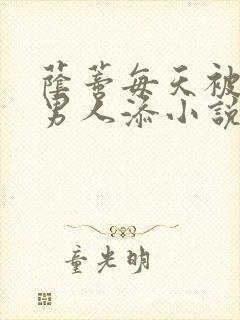 蔭蒂每天被
男人添小說
童光明